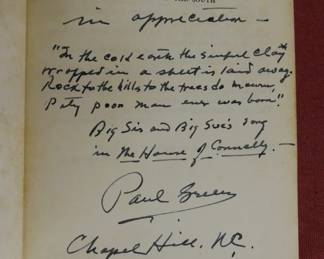 OF THE SOUTH
in appreciation —
"In the cold earth the sinful clay
wrapped in a sheet is laid away.
Rock to the hills to the trees do mourn,
Pity poor man ever was born."
Big Sis and Big Sue's song
in The House of Connelly. —
Paul Green
Chapel Hill, N.C.